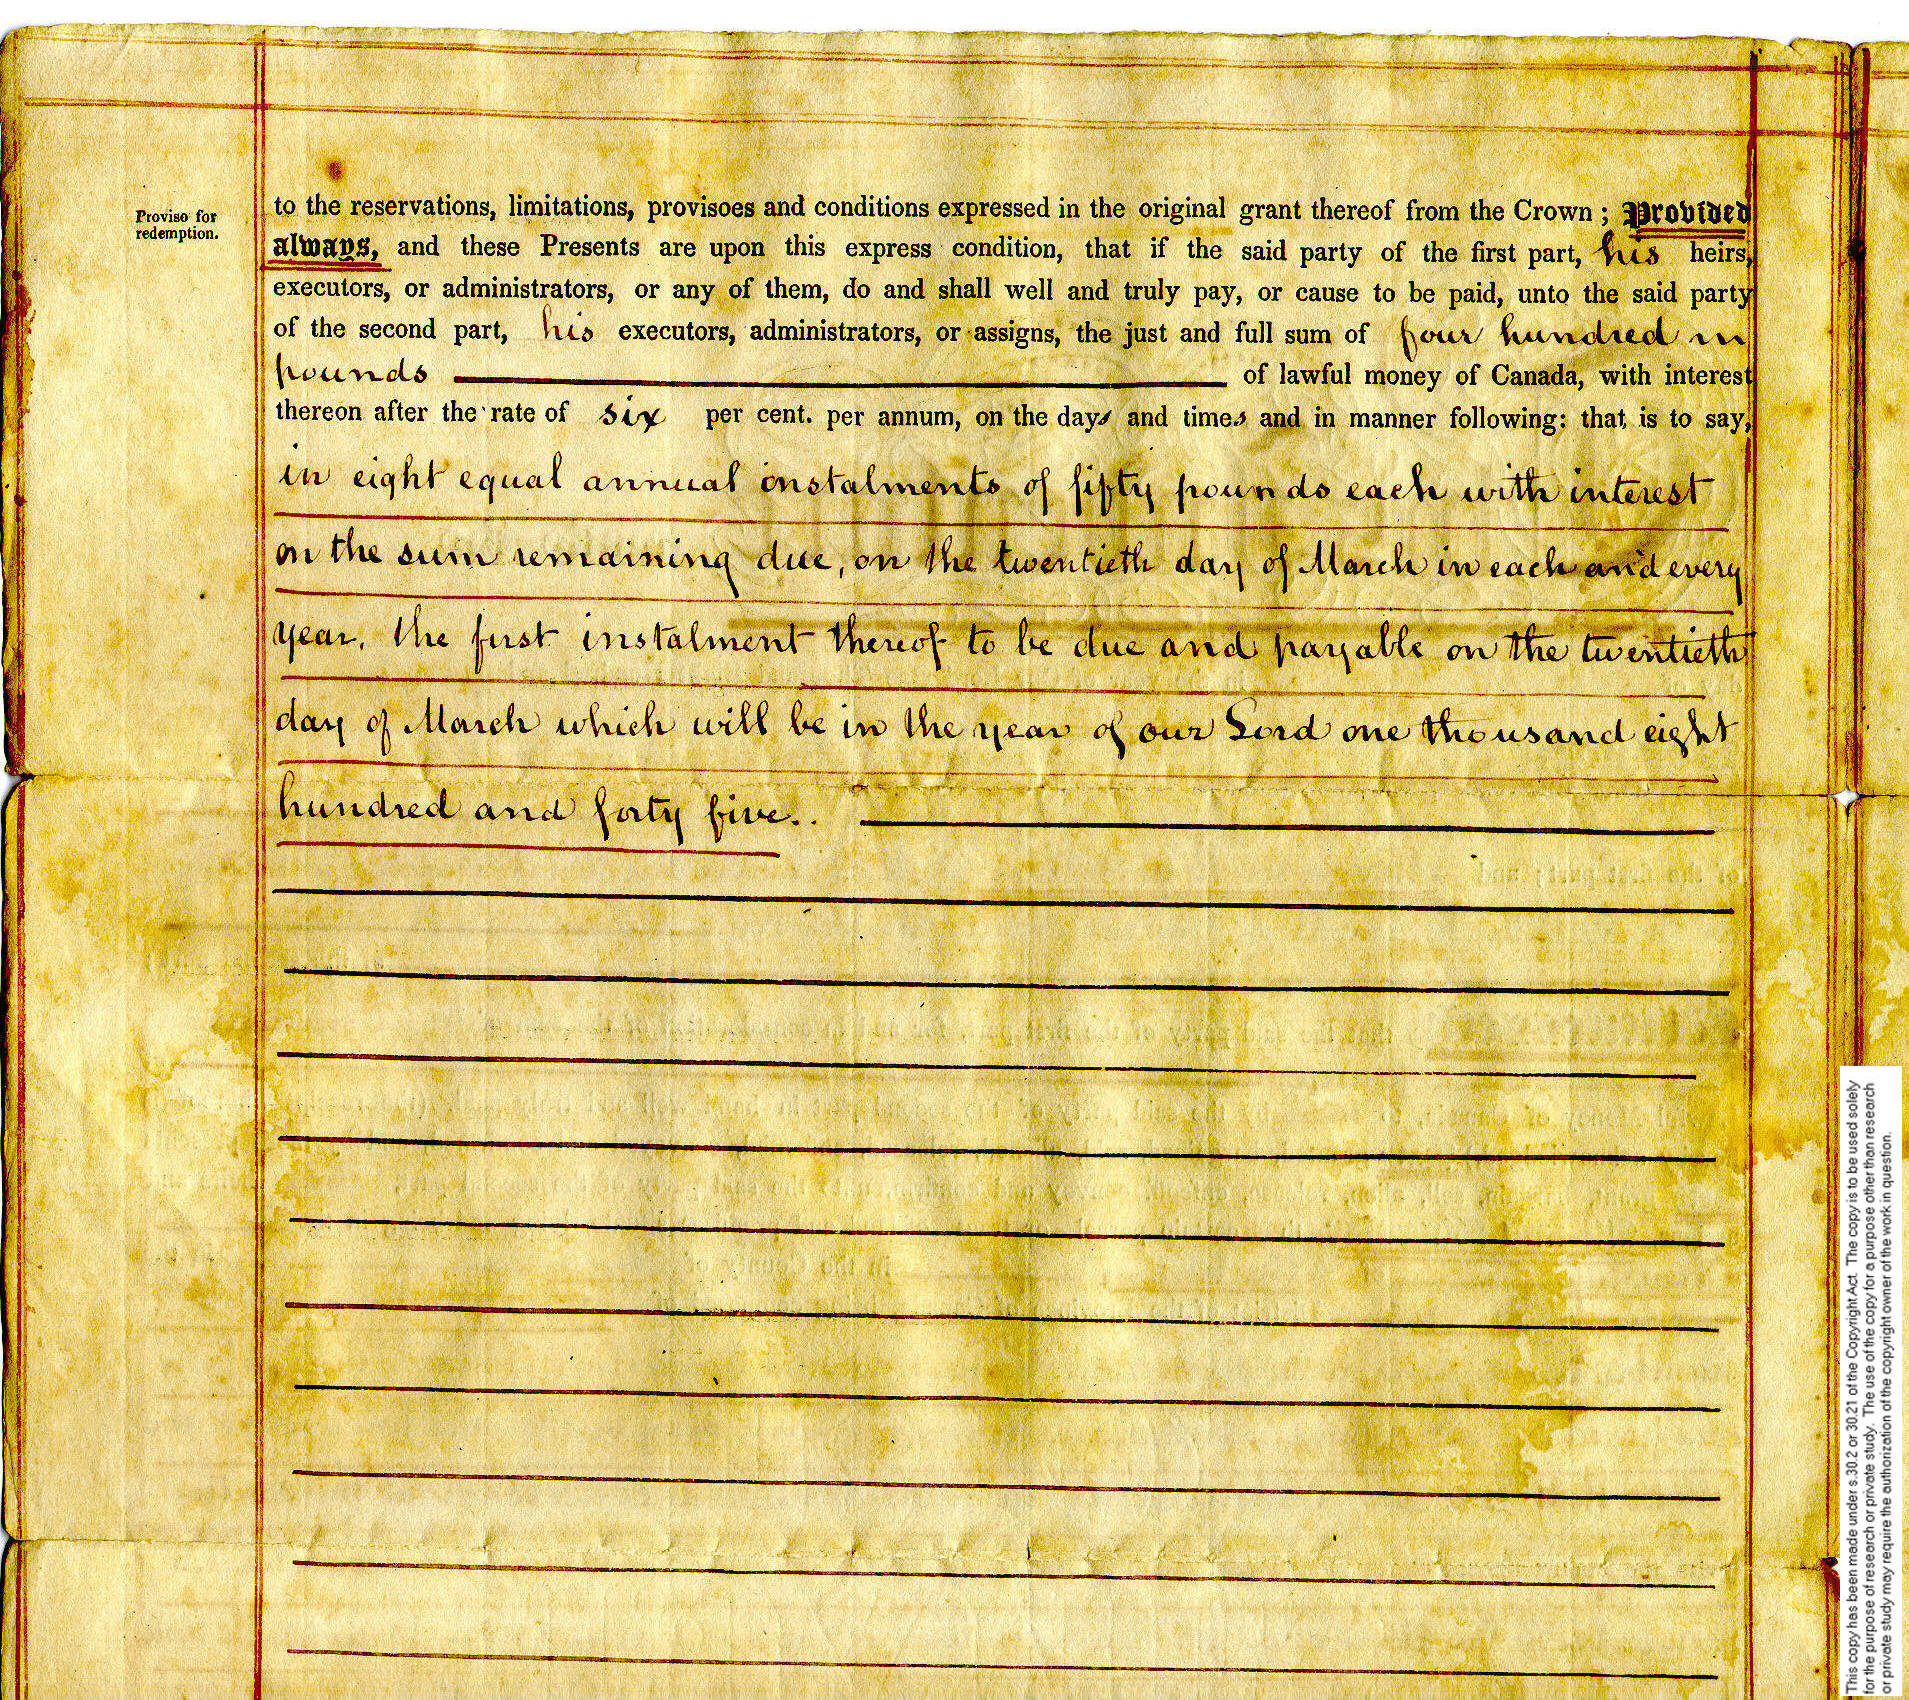 Proviso for
redemption.
to the reservations, limitations, provisoes and conditions expressed in the original grant thereof from the Crown ; Provided
always, and these Presents are upon this express condition, that if the said party of the first part, his heirs,
executors, or administrators, or any of them, do and shall well and truly pay, or cause to be paid, unto the said party
of the second part, his executors, administrators, or assigns, the just and full sum of four hundred
pounds of lawful money of Canada, with interest
thereon after the rate of six per cent. per annum, on the days and times and in manner following: that is to say,
in eight equal annual instalments of fifty pounds each with interest
on the sum remaining due, on the twentieth day of March in each and every
year. the first instalment thereof to be due and payable on the twentieth
day of March which will be in the year of our Lord one thousand eight
hundred and forty five.
This copy has been made under s.30.2 or 30.21 of the Copyright Act. The copy is to be used solely
for the purpose of research or private study. The use of the copy for a purpose other than research
or private study may require the authorization of the copyright owner of the work in question.